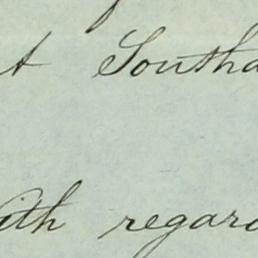 t Southa
ith regard